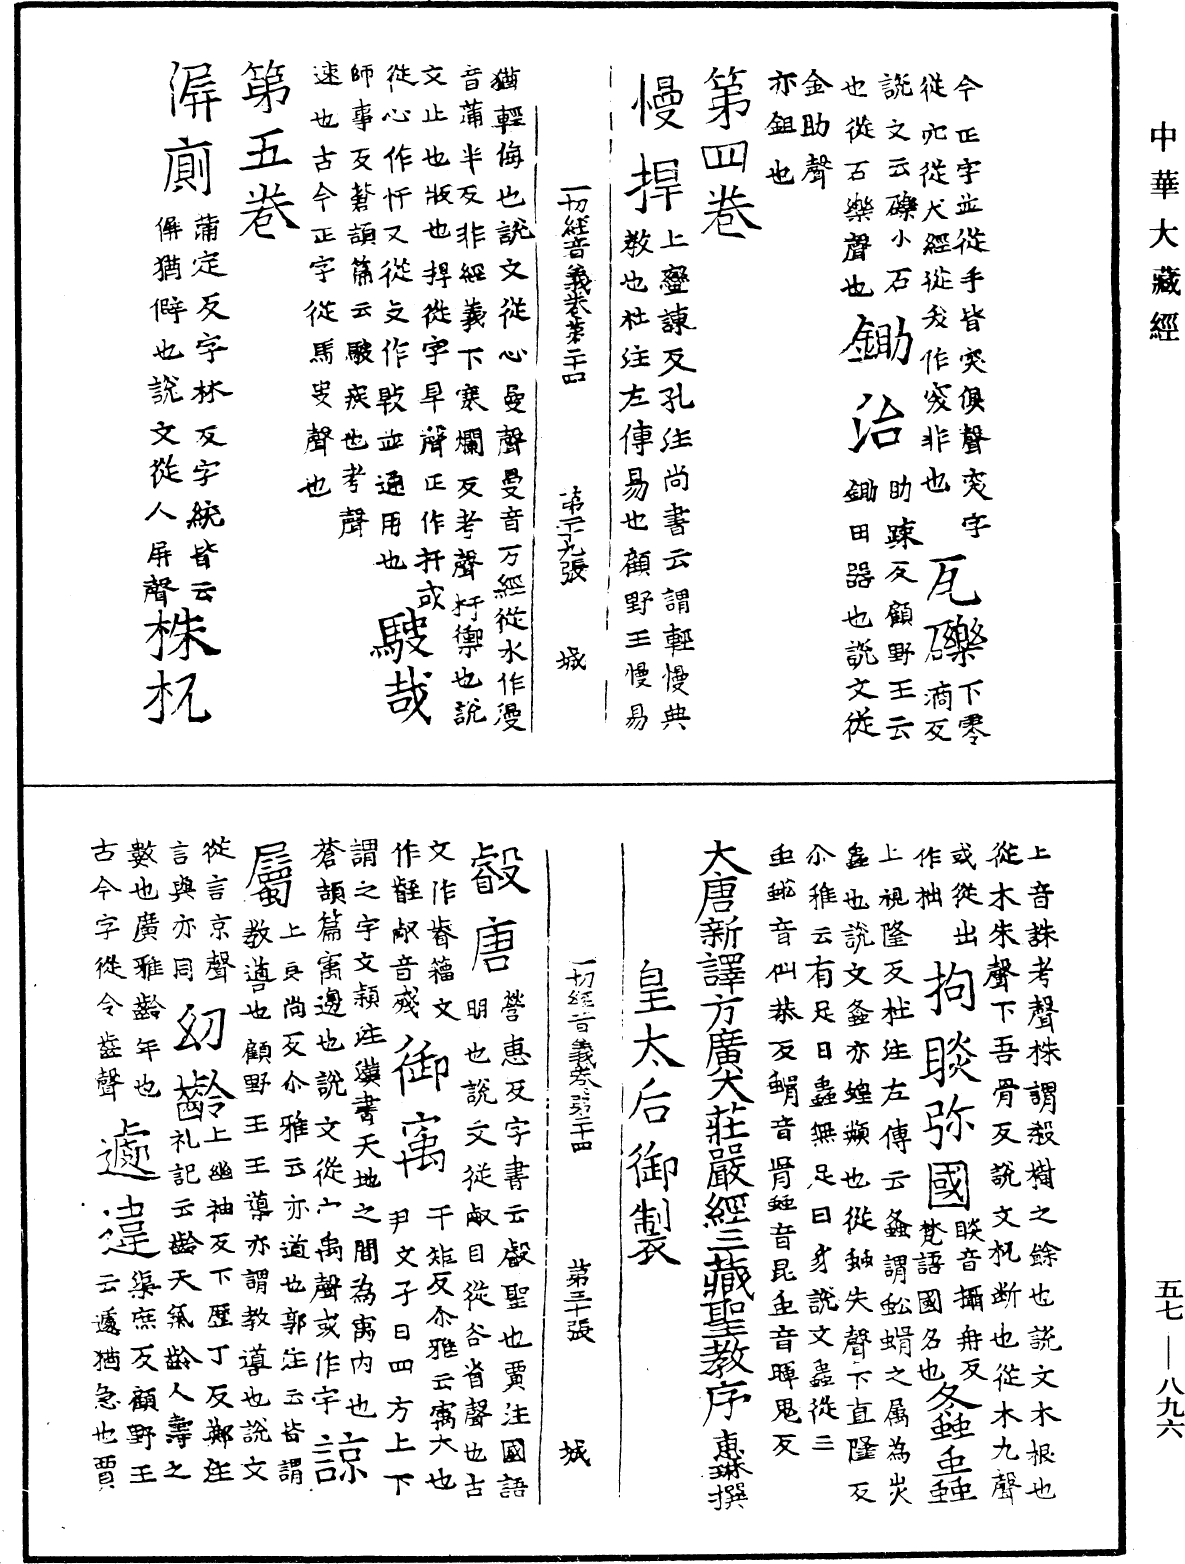 中華大藏經
今正字並從手皆突俱聲突字
從穴從犬經從戈作窢非也
瓦礫
下零
滴反
說文云礫小石
也從石樂聲也
鋤治
助踈反顧野王云
鋤田器也說文從
金助聲
亦鉏也
第四卷
慢捍
上蠻諫反孔注尚書云謂輕慢典
教也杜注左傳易也顧野王慢易
一切經音義卷第二十四
第二十九張
城
猶輕侮也說文從心曼聲曼音万經從水作漫
音蒲半反非經義下寒爛反考聲扞禦也說
文止也𭥍也捍從字旱聲正作扞或
從心作忓又從攴作戰並通用也
駛哉
師事反蒼頡篇云駛疾也考聲
速也古今正字從馬吏聲也
第五卷
屏廁
蒲定反字林反字統皆云
偋猶僻也說文從人屏聲
株杌
上音誅考聲株謂殺樹之餘也說文木根也
從木朱聲下吾骨反說文杌断也從木九聲
或從出
作柮
拘睒弥國
睒音攝冉反
梵語國名也
螽蟲
上視隆反杜注左傳云螽謂蚣蝑之属為災
蟲也說文螽亦蝗類也從䖵夂聲下直隆反
尒雅云有足曰蟲無足曰豸說文蟲從三
虫蚣音仙恭反蝑音胥䖵音昆虫音暉鬼反
大唐新譯方廣大莊嚴經三藏聖教序 惠琳撰
皇太后御製
一切經音義卷第二十四
第三十張
城
叡唐
營惠反字書云叡聖也賈注國語
明也說文從㕡目從谷省聲也古
文作睿籀文
作壡㕡音殘
御㝢
干矩反尒雅云㝢大也
尹文子曰四方上下
謂之宇文穎注漢書天地之間為㝢内也
蒼頡篇㝢邊也說文從宀禹聲或作宇
諒
屬
上良尚反尒雅云亦道也郭注云皆謂
教道也顧野王王導亦謂教導也說文
從言京聲
言與亦同
幼齡
上幽袖反下歷丁反鄭注
礼記云齡天氣齡人壽之
數也廣雅齡年也
古今字從令齒聲
遽違
渠庶反顧野王
云遽猶急也賈
五七—八九六